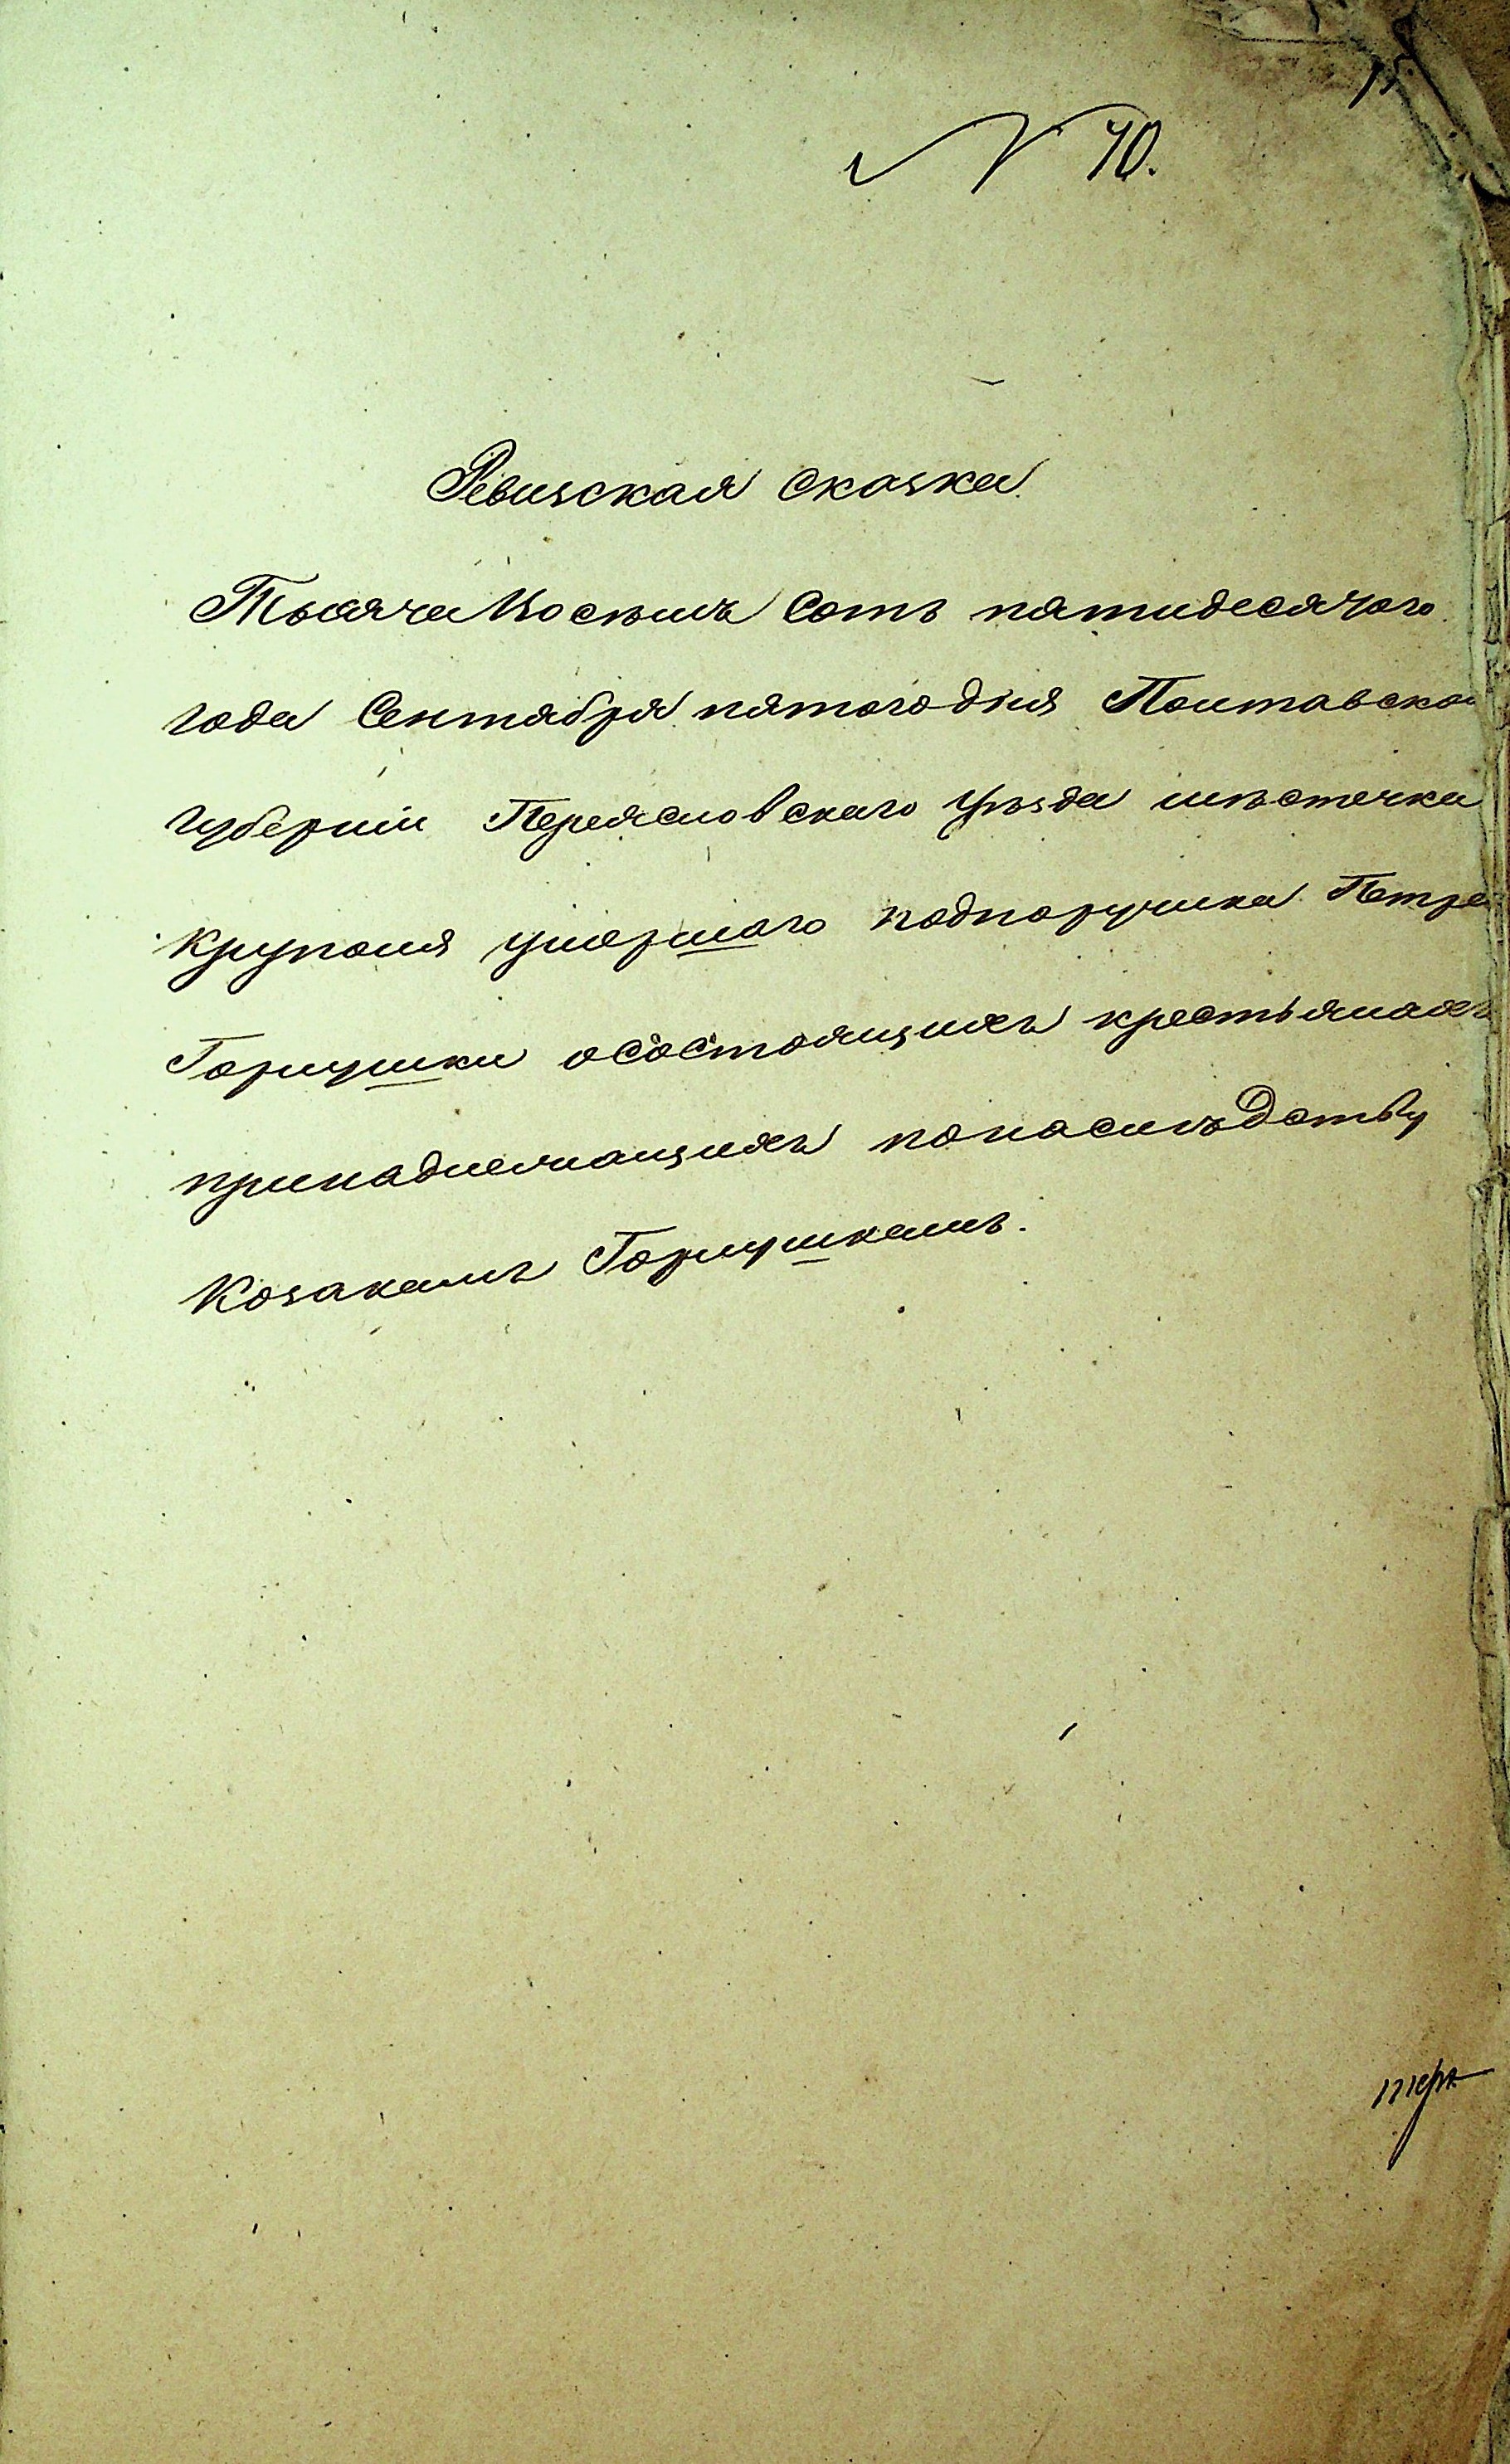 15
№ 70.
Ревизская сказка
Тысяча Восемъ Сотъ пятидесятого
года Сентября пятого дня Полтавской
губерніи Переясловского уѣзда мѣстечка
Круполя умершого подпоручика Петра
Горкушки осостоящихъ крестьянахъ
принадлежащихъ понаслѣдству
Козакамъ Горкушкамъ.